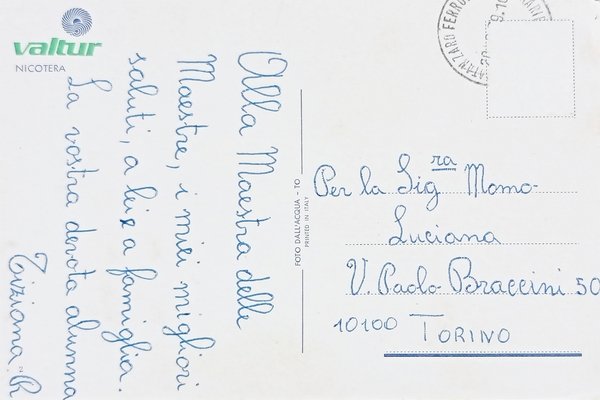 valtur
NICOTERA
Alla Maestra delle
Maestre, i miei migliori
saluti, a lei e a famiglia.
La vostra devota alunna
Tiziana R
FOTO DALL'ACQUA - TO
PRINTED IN ITALY
CATANZARO FERROVIA
Per la Sig.ra Momo
Luciana
V. Paolo Braccini 50
10100 TORINO